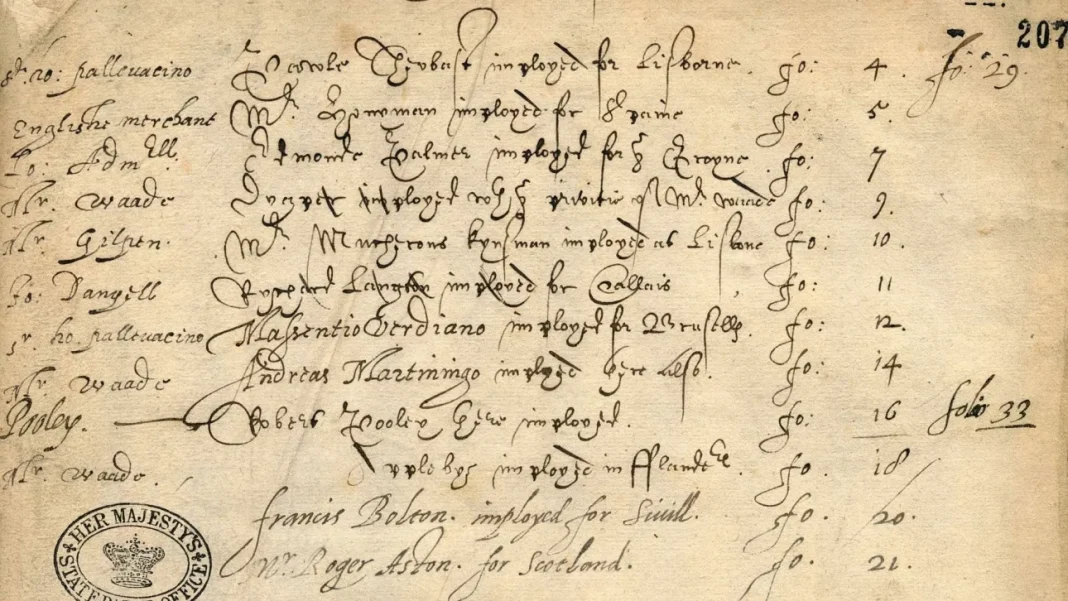 207
Sr. ho: pallevacino Powle Theobast imployed for Lisborne. fo: 4. fo: 29.
Englishe merchant Mr. Honyman imployed for Spaine fo: 5.
Lo: Admll. Edmonde Palmer imployed for ye Groyne. fo: 7
Mr. Waade imployed wth ye privitie of Mr. Waade fo: 9.
Mr. Gilpen. Mr. Mucherons kynsman imployed at Lisbone fo: 10.
Jo: Dangell Rychard Langton imployed for Callais, fo: 11
Sr. ho. pallevacino Massentio Verdiano imployed for Brussells. fo: 12.
Mr. Waade Andreas Martiningo imployed here also. fo: 14
Pooley. Robert Pooley here imployed. fo: 16 folio 33
Mr. Waade. imployed in fflanders. fo. 18
francis Bolton. imployed for Sivill. fo. 20.
Mr. Roger Aston. for Scotland. fo. 21.
HER MAJESTY'S
STATE PAPER OFFICE